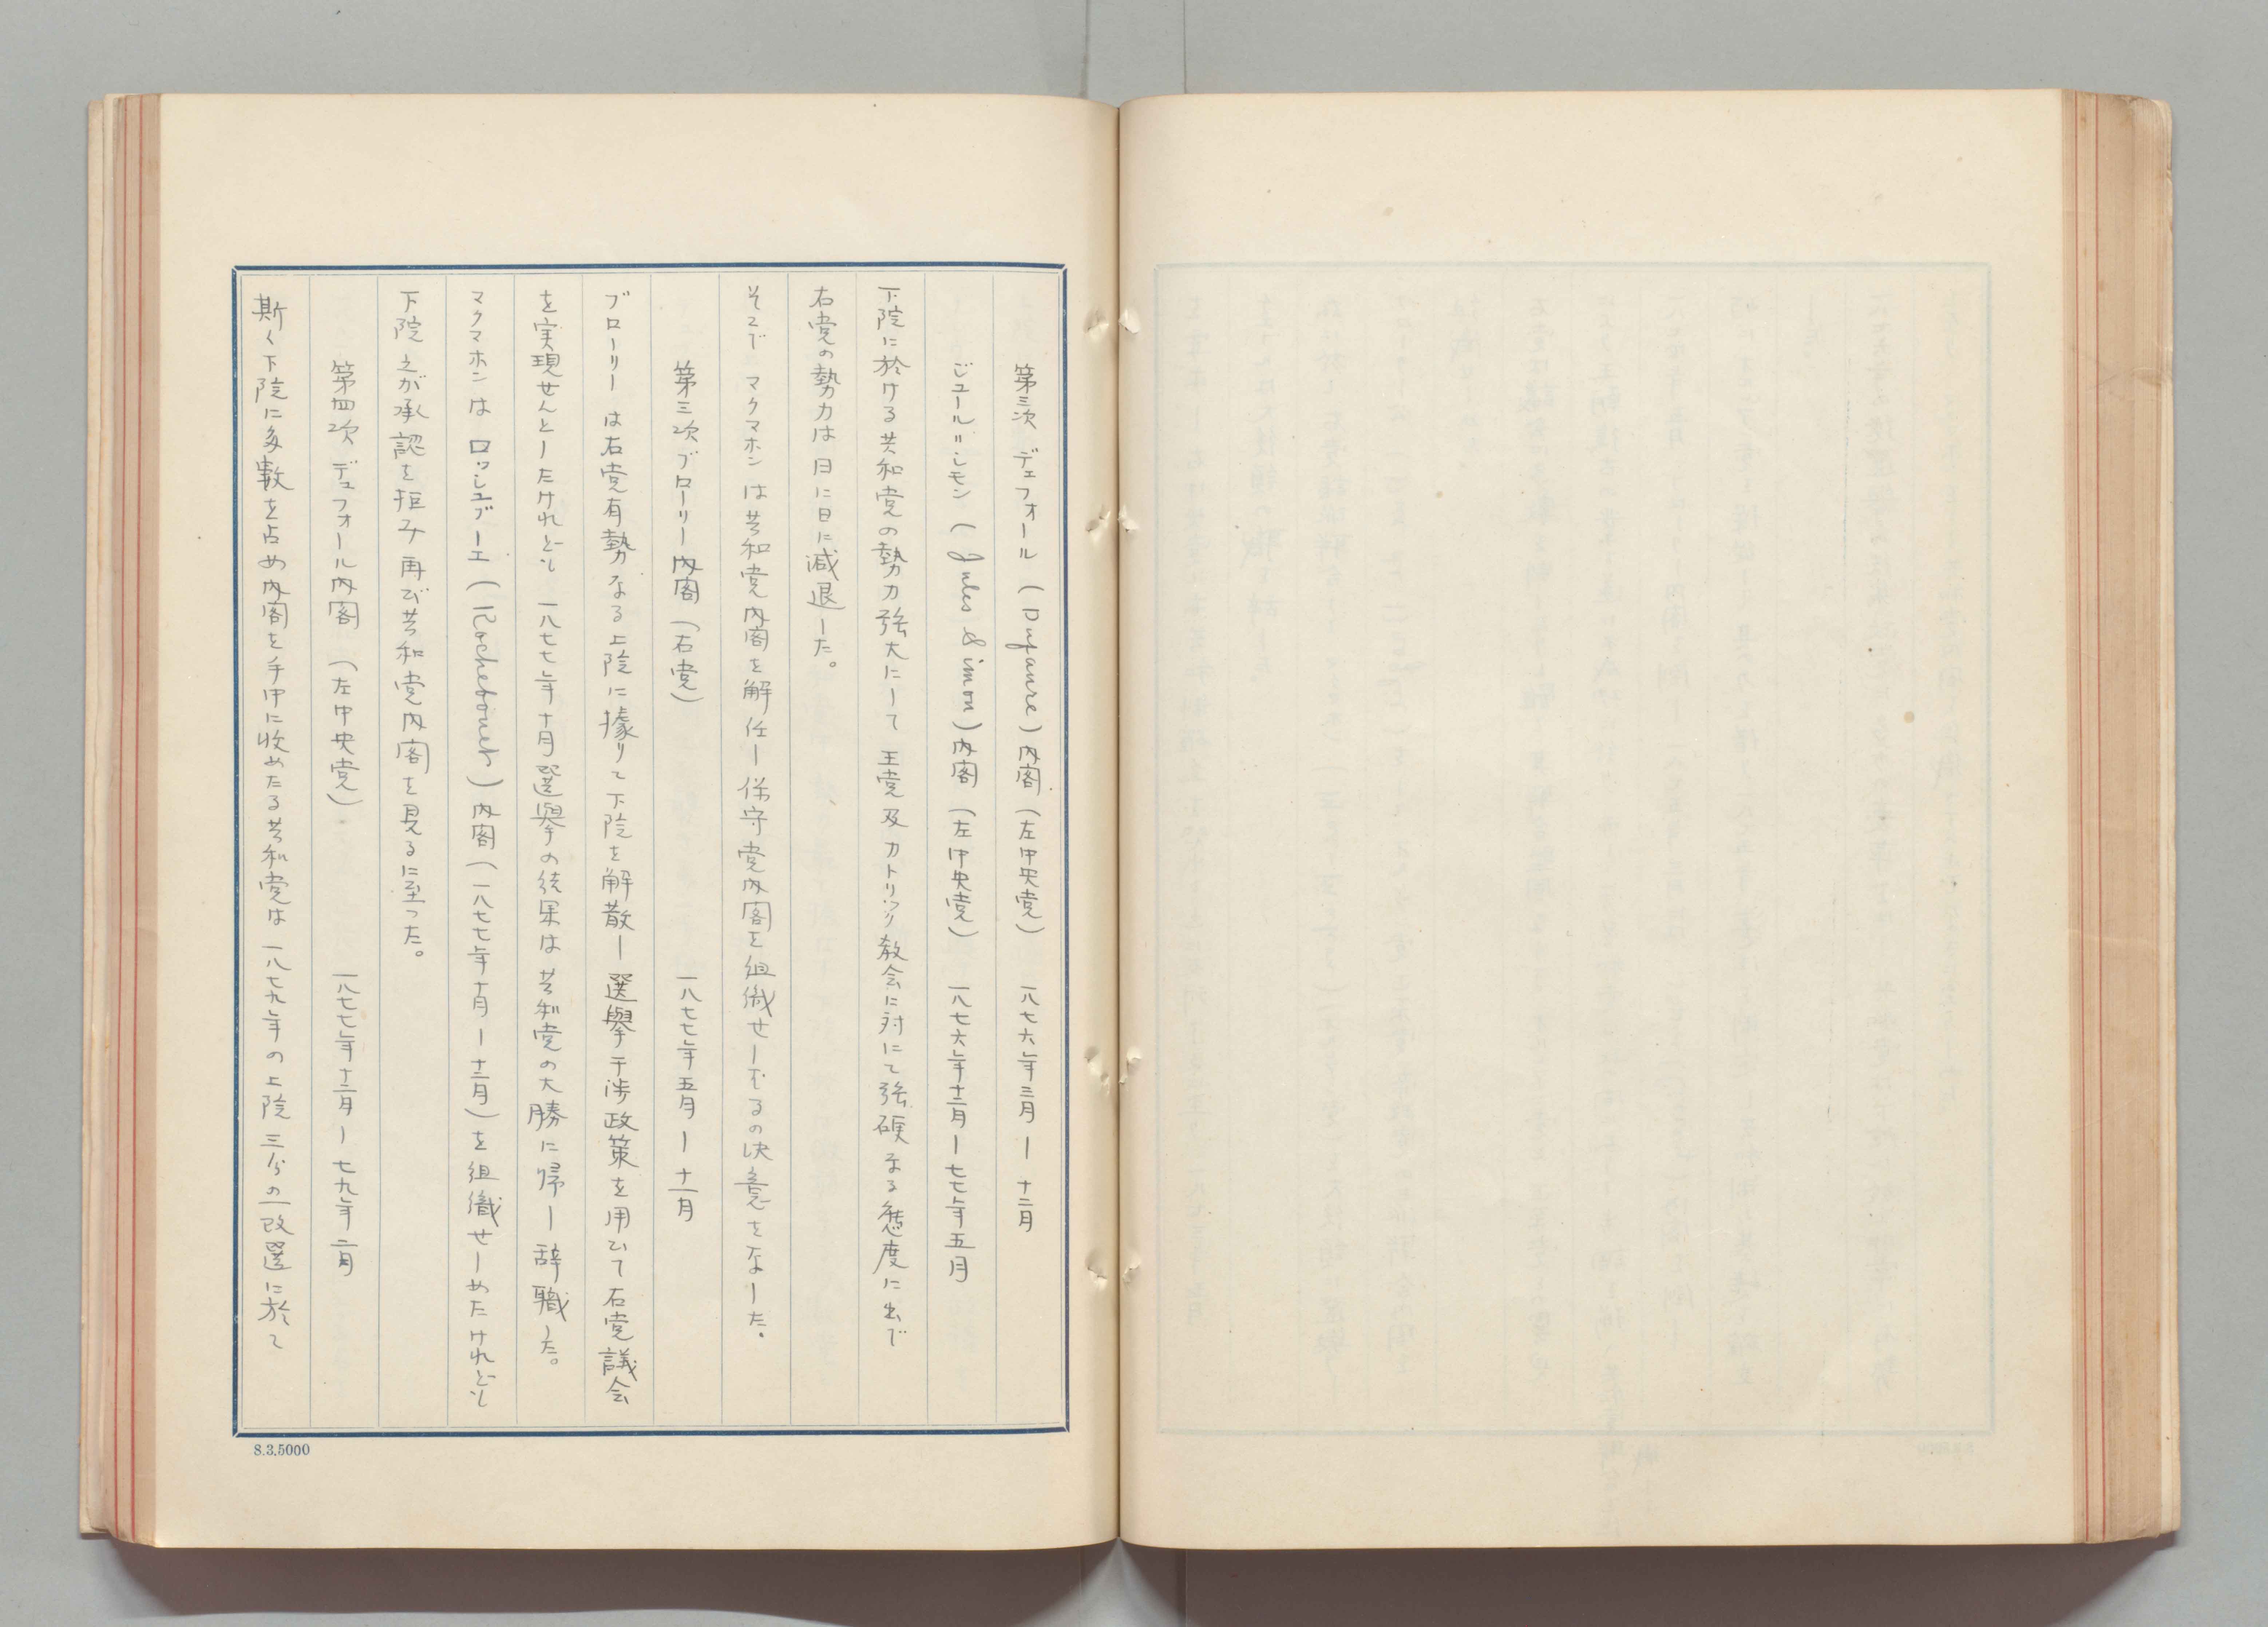 第三次 デュフォール (Dufaure) 内閣 (左中央党) 一八七六年三月ー十二月
ジュール=シモン (Jules Simon) 内閣 (左中央党) 一八七六年十二月ー七七年五月
下院に於ける共和党の勢力強大にして 王党及カトリック教会に対して強硬なる態度に出で
右党の勢力は日に日に減退した。
そこで マクマホンは共和党内閣を解任し保守党内閣を組織せしむるの決意をなした。
第三次ブローリー内閣 (右党) 一八七七年五月ー十一月
ブローリーは右党有勢なる上院に據りて下院を解散し 選擧干渉政策を用ひて右党議会
を実現せんとしたけれども 一八七七年十月選擧の結果は共和党の大勝に帰し 辞職した。
マクマホンは ロッシュブーエ (Rochebouet) 内閣 (一八七七年十一月ー十二月) を組織せしめたけれども
下院之が承認を拒み 再び共和党内閣を見るに至った。
第四次 デュフォール内閣 (左中央党) 一八七七年十二月ー七九年二月
斯く下院に多數を占め内閣を手中に收めたる共和党は 一八七九年の上院三分の一改選に於て
8.3.5000